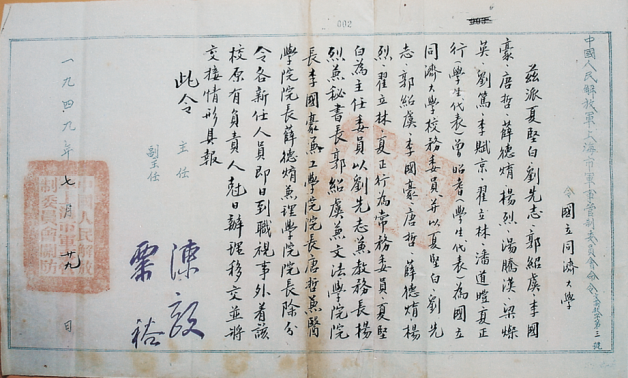 002
中國人民解放軍上海市軍事管制委員會命令
令 國立同濟大學
茲派夏堅白、劉先志、郭紹虞、李國
豪、唐哲、薛德焴、楊烈、湯騰漢、梁燦
英、劉篤、李賦京、翟立林、潘道皚、夏正
行(學生代表)曾昭耆(學生代表)為國立
同濟大學校務委員，并以夏堅白、劉先
志、郭紹虞、李國豪、唐哲、薛德焴、楊
烈、翟立林、夏正行為常務委員，夏堅
白為主任委員，以劉先志兼教務長，楊
烈兼秘書長，郭紹虞兼文法學院院
長，李國豪兼工學院院長，唐哲兼醫
學院院長，薛德焴兼理學院院長，除分
令各新任人員即日到職視事外，着該
校原有負責人尅日辦理移交，並將
交接情形具報
此令
主任 陳毅
副主任 粟裕
一九四九年七月廿九日